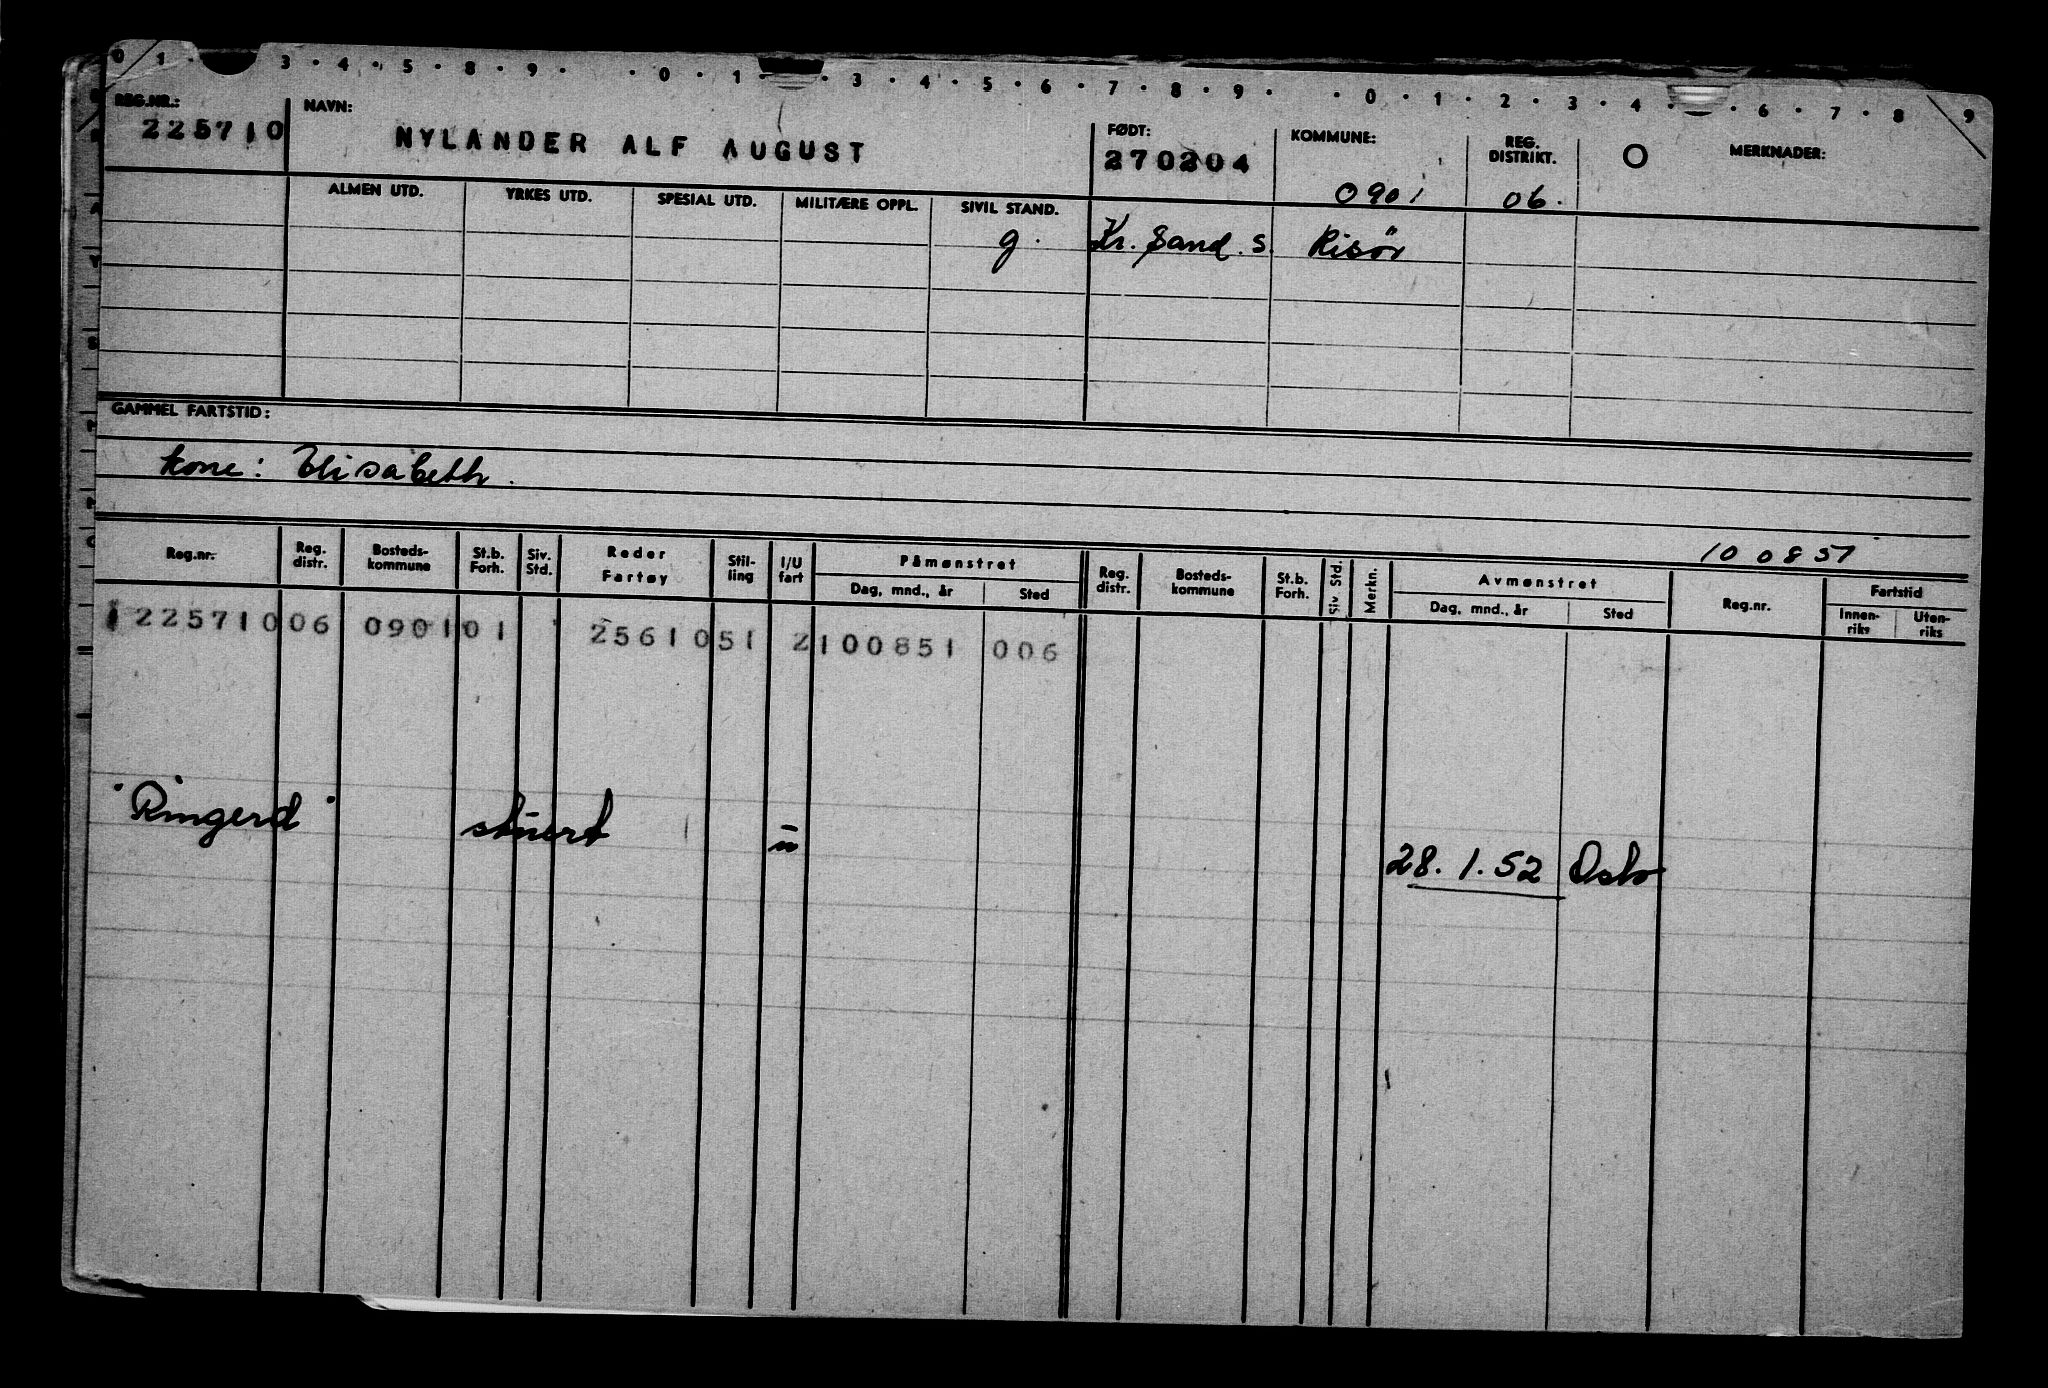 0 1 · 3 · 4 · 5 · 8 · 9 · · 0 · 1 · 3 · 4 · 5 · 6 · 7 · 8 · 9 · · 0 · 1 · 2 · 3 · 4 · · 6 · 7 · 8 9
REG.NR.: NAVN: FØDT: KOMMUNE: REG. DISTRIKT. O MERKNADER:
225710 NYLANDER ALF AUGUST 270204 0901 06.
ALMEN UTD. YRKES UTD. SPESIAL UTD. MILITÆRE OPPL. SIVIL STAND.
g. Kr. Sand. S. Risör
GAMMEL FARTSTID:
kone: Elisabeth.
10 08 51
Reg.nr. Reg. distr. Bosteds-kommune St.b. Forh. Siv. Std. Reder Fartøy Stil-ling I/U fart Påmønstret Reg. distr. Bosteds-kommune St.b. Forh. Siv Std. Merkn. Avmønstret Reg.nr. Fartstid
Dag, mnd., år Sted Dag, mnd., år Sted Innen-riks Uten-riks
225710 06 0901 01 25610 51 2 100851 006
"Ringerd" stuert u
28.1.52 Oslo